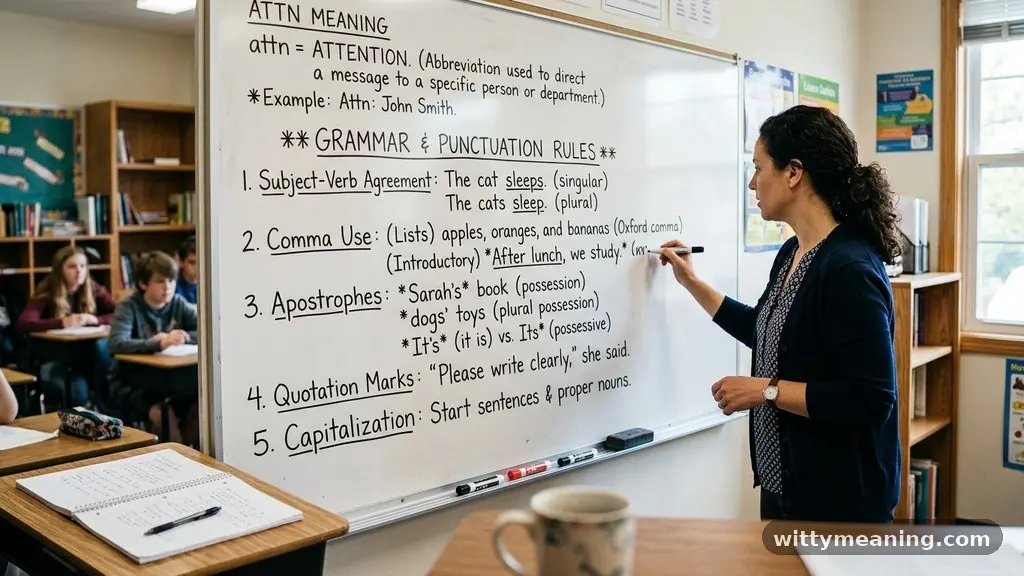 ATTN MEANING
attn = ATTENTION. (Abbreviation used to direct
a message to a specific person or department.)
*Example: Attn: John Smith.
** GRAMMAR & PUNCTUATION RULES **
1. Subject-Verb Agreement: The cat sleeps. (singular)
The cats sleep. (plural)
2. Comma Use: (Lists) apples, oranges, and bananas (Oxford comma)
(Introductory) *After lunch, we study.*
3. Apostrophes: *Sarah's* book (possession)
*dogs' toys (plural possession)
*It's* (it is) vs. Its* (possessive)
4. Quotation Marks: “Please write clearly,” she said.
5. Capitalization: Start sentences & proper nouns.
wittymeaning.com